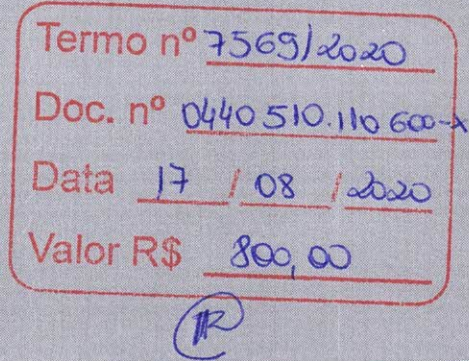 Termo nº 7569/2020
Doc. nº 0440 510.110 600-X
Data 17 / 08 / 2020
Valor R$ 800,00